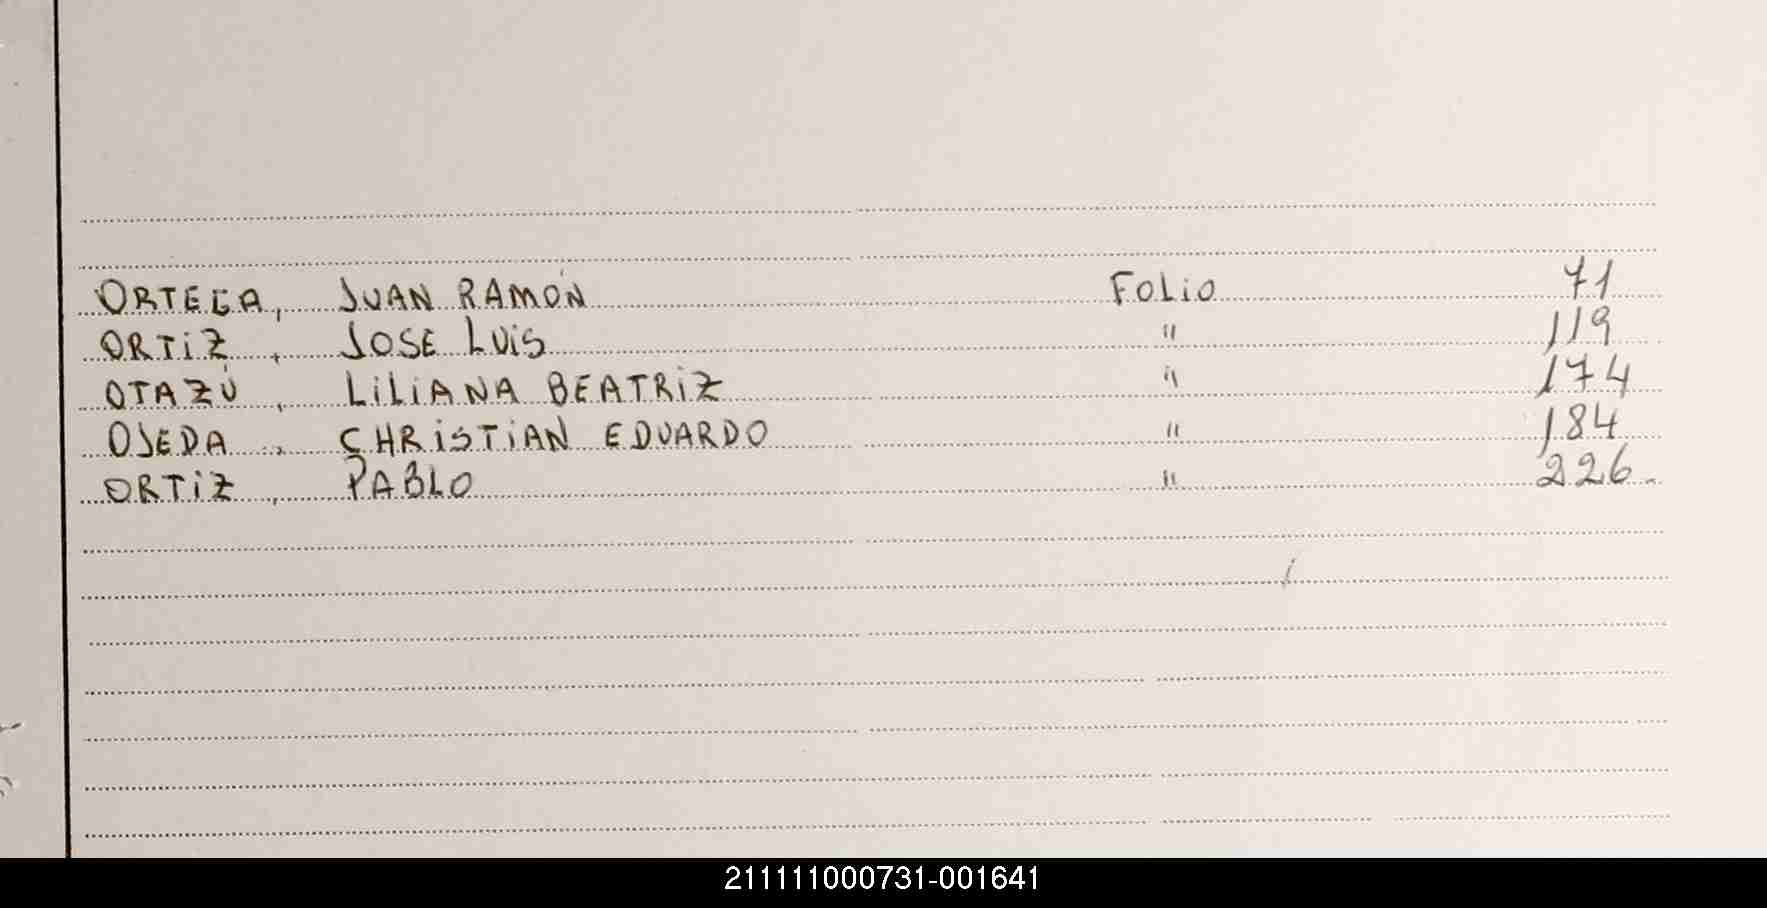 ORTEGA, JUAN RAMÓN Folio 71
ORTIZ, JOSE LUIS " 119
OTAZÚ, LILIANA BEATRIZ " 174
OJEDA, CHRISTIAN EDUARDO " 184
ORTIZ, PABLO " 226.
211111000731-001641